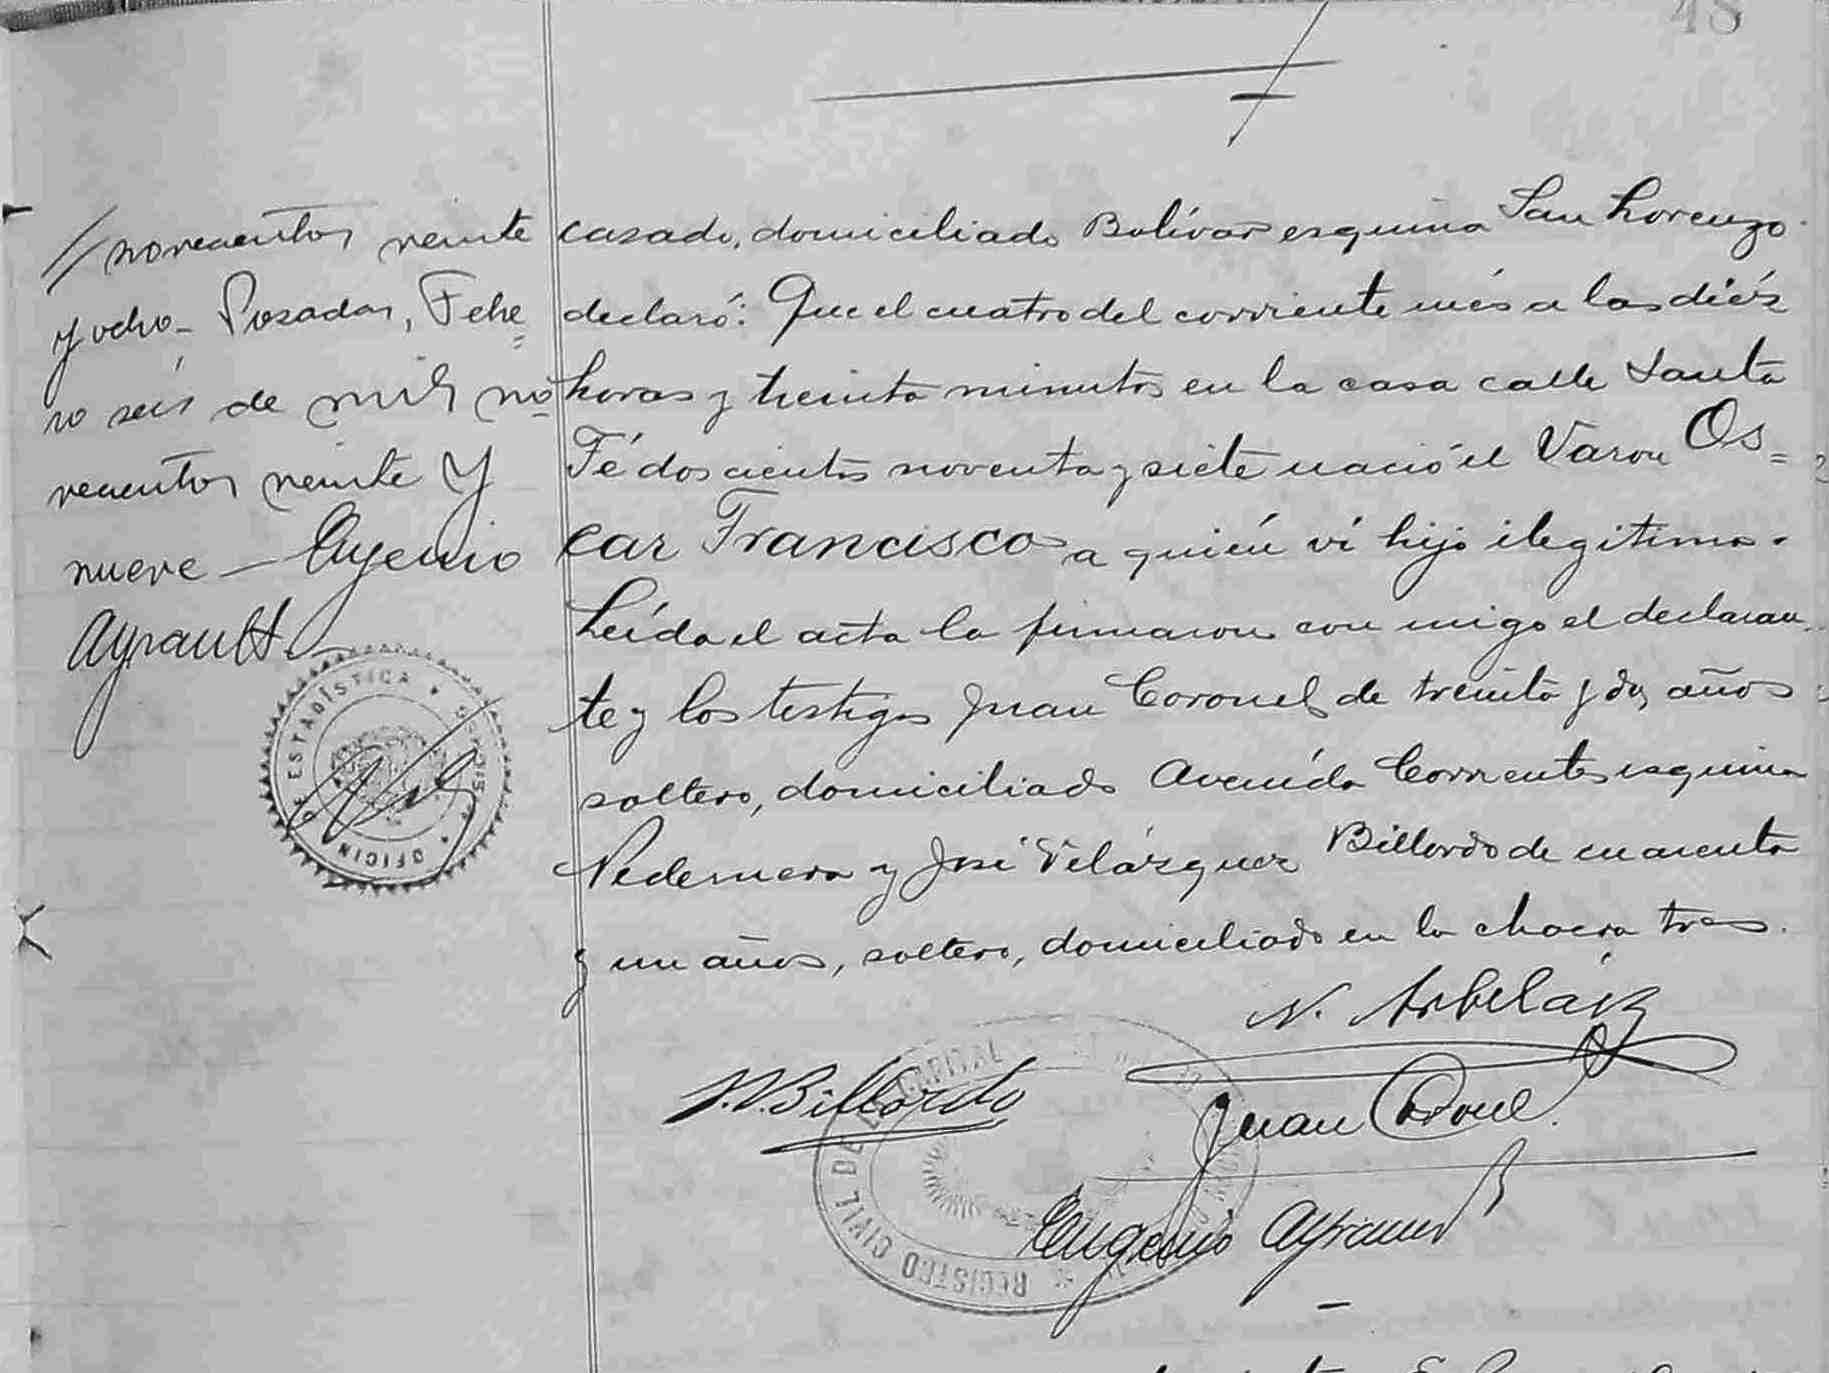 48
// novecientos veinte
y ocho - Posadas, Febre=
ro seis de mil no-
vecientos veinte y
nueve — Eugenio
Ayrault
OFICINA DE ESTADÍSTICA
casado, domiciliado Bolívar esquina San Lorenzo
declaró: Que el cuatro del corriente més a las diéz
horas y treinta minutos en la casa calle Santa
Fé doscientos noventa y siete nació el Varon Os=
car Francisco a quién ví hijo ilegitimo.
Leída el acta la firmaron con migo el declaran
te y los testigos Juan Coronel de treinta y dos años
soltero, domiciliado Avenida Corrientes esquina
Pedernera y José Velázquez Billordo de cuarenta
y un años, soltero, domiciliado en la chacra tres.
N. Arbeláiz
J.V. Billordo
Juan Coronel
Eugenio Ayrault
REGISTRO CIVIL DE LA CAPITAL